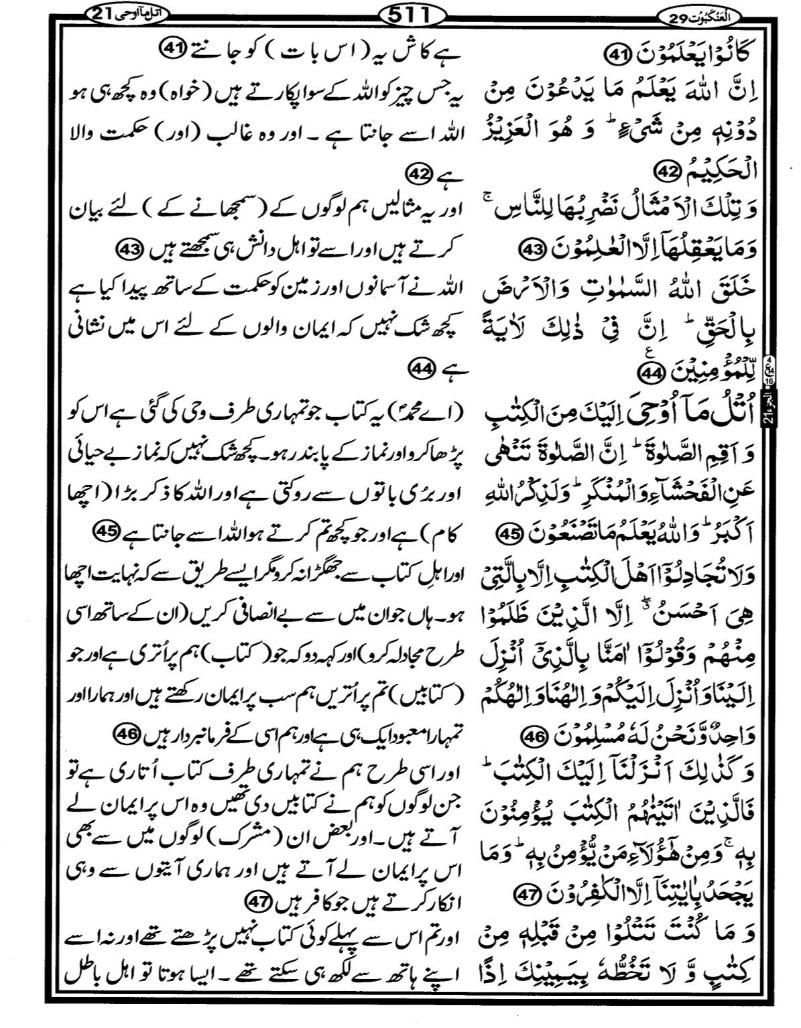 العنکبوت 29
511
اتل مآ اوحی 21
كَانُوْا يَعْلَمُوْنَ 41
اِنَّ اللّٰهَ يَعْلَمُ مَا يَدْعُوْنَ مِنْ
دُوْنِهٖ مِنْ شَیْءٍ ؕ وَ هُوَ الْعَزِيْزُ
الْحَكِيْمُ 42
وَ تِلْكَ الْاَمْثَالُ نَضْرِبُهَا لِلنَّاسِ ۚ
وَ مَا يَعْقِلُهَاۤ اِلَّا الْعٰلِمُوْنَ 43
خَلَقَ اللّٰهُ السَّمٰوٰتِ وَالْاَرْضَ
بِالْحَقِّ ؕ اِنَّ فِیْ ذٰلِكَ لَاٰيَةً
لِّلْمُؤْمِنِيْنَ 44 ع
اُتْلُ مَاۤ اُوْحِیَ اِلَيْكَ مِنَ الْكِتٰبِ
وَ اَقِمِ الصَّلٰوةَ ؕ اِنَّ الصَّلٰوةَ تَنْهٰی
عَنِ الْفَحْشَآءِ وَالْمُنْكَرِ ؕ وَلَذِكْرُ اللّٰهِ
اَكْبَرُ ؕ وَاللّٰهُ يَعْلَمُ مَا تَصْنَعُوْنَ 45
وَلَا تُجَادِلُوْۤا اَهْلَ الْكِتٰبِ اِلَّا بِالَّتِیْ
هِیَ اَحْسَنُ ۖۗ اِلَّا الَّذِيْنَ ظَلَمُوْا
مِنْهُمْ وَقُوْلُوْۤا اٰمَنَّا بِالَّذِیْۤ اُنْزِلَ
اِلَيْنَا وَاُنْزِلَ اِلَيْكُمْ وَاِلٰهُنَا وَاِلٰهُكُمْ
وَاحِدٌ وَّنَحْنُ لَهٗ مُسْلِمُوْنَ 46
وَ كَذٰلِكَ اَنْزَلْنَاۤ اِلَيْكَ الْكِتٰبَ ؕ
فَالَّذِيْنَ اٰتَيْنٰهُمُ الْكِتٰبَ يُؤْمِنُوْنَ
بِهٖ ۚ وَمِنْ هٰۤؤُلَآءِ مَنْ يُّؤْمِنُ بِهٖ ؕ وَ مَا
يَجْحَدُ بِاٰيٰتِنَاۤ اِلَّا الْكٰفِرُوْنَ 47
وَ مَا كُنْتَ تَتْلُوْا مِنْ قَبْلِهٖ مِنْ
كِتٰبٍ وَّ لَا تَخُطُّهٗ بِيَمِيْنِكَ اِذًا
ہے کاش یہ ( اس بات ) کو جانتے 41
یہ جس چیز کو اللہ کے سوا پکارتے ہیں (خواہ) وہ کچھ ہی ہو
اللہ اسے جانتا ہے ۔ اور وہ غالب (اور) حکمت والا
ہے 42
اور یہ مثالیں ہم لوگوں کے (سمجھانے کے ) لئے بیان
کرتے ہیں اور اسے تو اہل دانش ہی سمجھتے ہیں 43
اللہ نے آسمانوں اور زمین کو حکمت کے ساتھ پیدا کیا ہے
کچھ شک نہیں کہ ایمان والوں کے لئے اس میں نشانی
ہے 44
(اے محمدؐ) یہ کتاب جو تمہاری طرف وحی کی گئی ہے اس کو
پڑھا کرو اور نماز کے پابند رہو۔ کچھ شک نہیں کہ نماز بے حیائی
اور بُری باتوں سے روکتی ہے اور اللہ کا ذکر بڑا (اچھا
کام) ہے اور جو کچھ تم کرتے ہو اللہ اسے جانتا ہے 45
اور اہلِ کتاب سے جھگڑا نہ کرو مگر ایسے طریق سے کہ نہایت اچھا
ہو۔ ہاں جو ان میں سے بے انصافی کریں (ان کے ساتھ اسی
طرح مجادلہ کرو) اور کہہ دو کہ جو ( کتاب) ہم پر اُتری ہے اور جو
( کتابیں) تم پر اُتریں ہم سب پر ایمان رکھتے ہیں اور ہمارا اور
تمہارا معبود ایک ہی ہے اور ہم اسی کے فرمانبردار ہیں 46
اور اسی طرح ہم نے تمہاری طرف کتاب اُتاری ہے تو
جن لوگوں کو ہم نے کتابیں دی تھیں وہ اس پر ایمان لے
آتے ہیں ۔ اور بعض ان (مشرک) لوگوں میں سے بھی
اس پر ایمان لے آتے ہیں اور ہماری آیتوں سے وہی
انکار کرتے ہیں جو کافر ہیں 47
اور تم اس سے پہلے کوئی کتاب نہیں پڑھتے تھے اور نہ اسے
اپنے ہاتھ سے لکھ ہی سکتے تھے ۔ ایسا ہوتا تو اہل باطل
الجزء 21